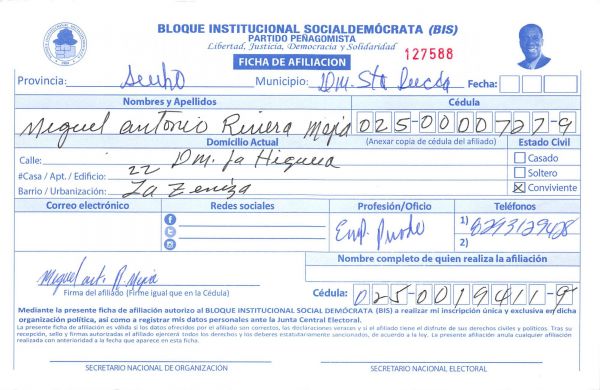 BLOQUE INSTITUCIONAL SOCIALDEMÓCRATA (BIS)
PARTIDO PEÑAGOMISTA
Libertad, Justicia, Democracia y Solidaridad
FICHA DE AFILIACION 127588
Provincia: Municipio: DM. Sta Fecha:
Nombres y Apellidos Cédula
Miguel Antonio Rivera Mejia 025-0000727-9
Domicilio Actual (Anexar copia de cédula del afiliado) Estado Civil
Calle: DM. La Higuera Casado
#Casa / Apt. / Edificio: 22 Soltero
Barrio / Urbanización: La Zeniza Conviviente
Correo electrónico Redes sociales Profesión/Oficio Teléfonos
Emp. 1) 8293129428
2)
Nombre completo de quien realiza la afiliación
Miguel ant. R. Mejia
Firma del afiliado (Firme igual que en la Cédula) Cédula: 025-0019411-9
Mediante la presente ficha de afiliación autorizo al BLOQUE INSTITUCIONAL SOCIAL DEMÓCRATA (BIS) a realizar mi inscripción única y exclusiva en dicha
organización política, así como a registrar mis datos personales ante la Junta Central Electoral.
La presente ficha de afiliación es válida si los datos ofrecidos por el afiliado son correctos, las declaraciones veraces y si el afiliado tiene el disfrute de sus derechos civiles y políticos. Tras su
recepción, sello y firmas autorizadas el afiliado ejercerá todos los derechos y los deberes estatutariamente sancionados, de acuerdo a la ley. La presente afiliación anula cualquier afiliación
realizada con anterioridad a la fecha que aparece en esta ficha.
SECRETARIO NACIONAL DE ORGANIZACIÓN SECRETARIO NACIONAL ELECTORAL